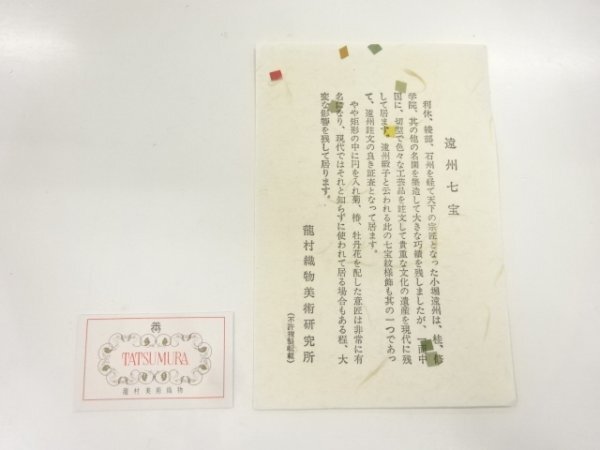 遠州七宝
利休、織部、石州を経て天下の宗匠となった小堀遠州は、桂、修
学院、其の他の名園を築造して大きな功績を残しましたが、一面中
国に、切型で色々な工芸品を註文して貴重な文化の遺産を現代に残
して居ます。遠州緞子と云われる此の七宝紋様飾も其の一つであっ
て、遠州註文の良き証査となって居ます。
やや矩形の中に円を入れ菊、椿、牡丹花を配した意匠は非常に有
名になり、現代ではそれと知らずに使われて居る場合もある程、大
変な影響を残して居ります。
龍村織物美術研究所
(不許複製転載)
TATSUMURA
龍村美術織物